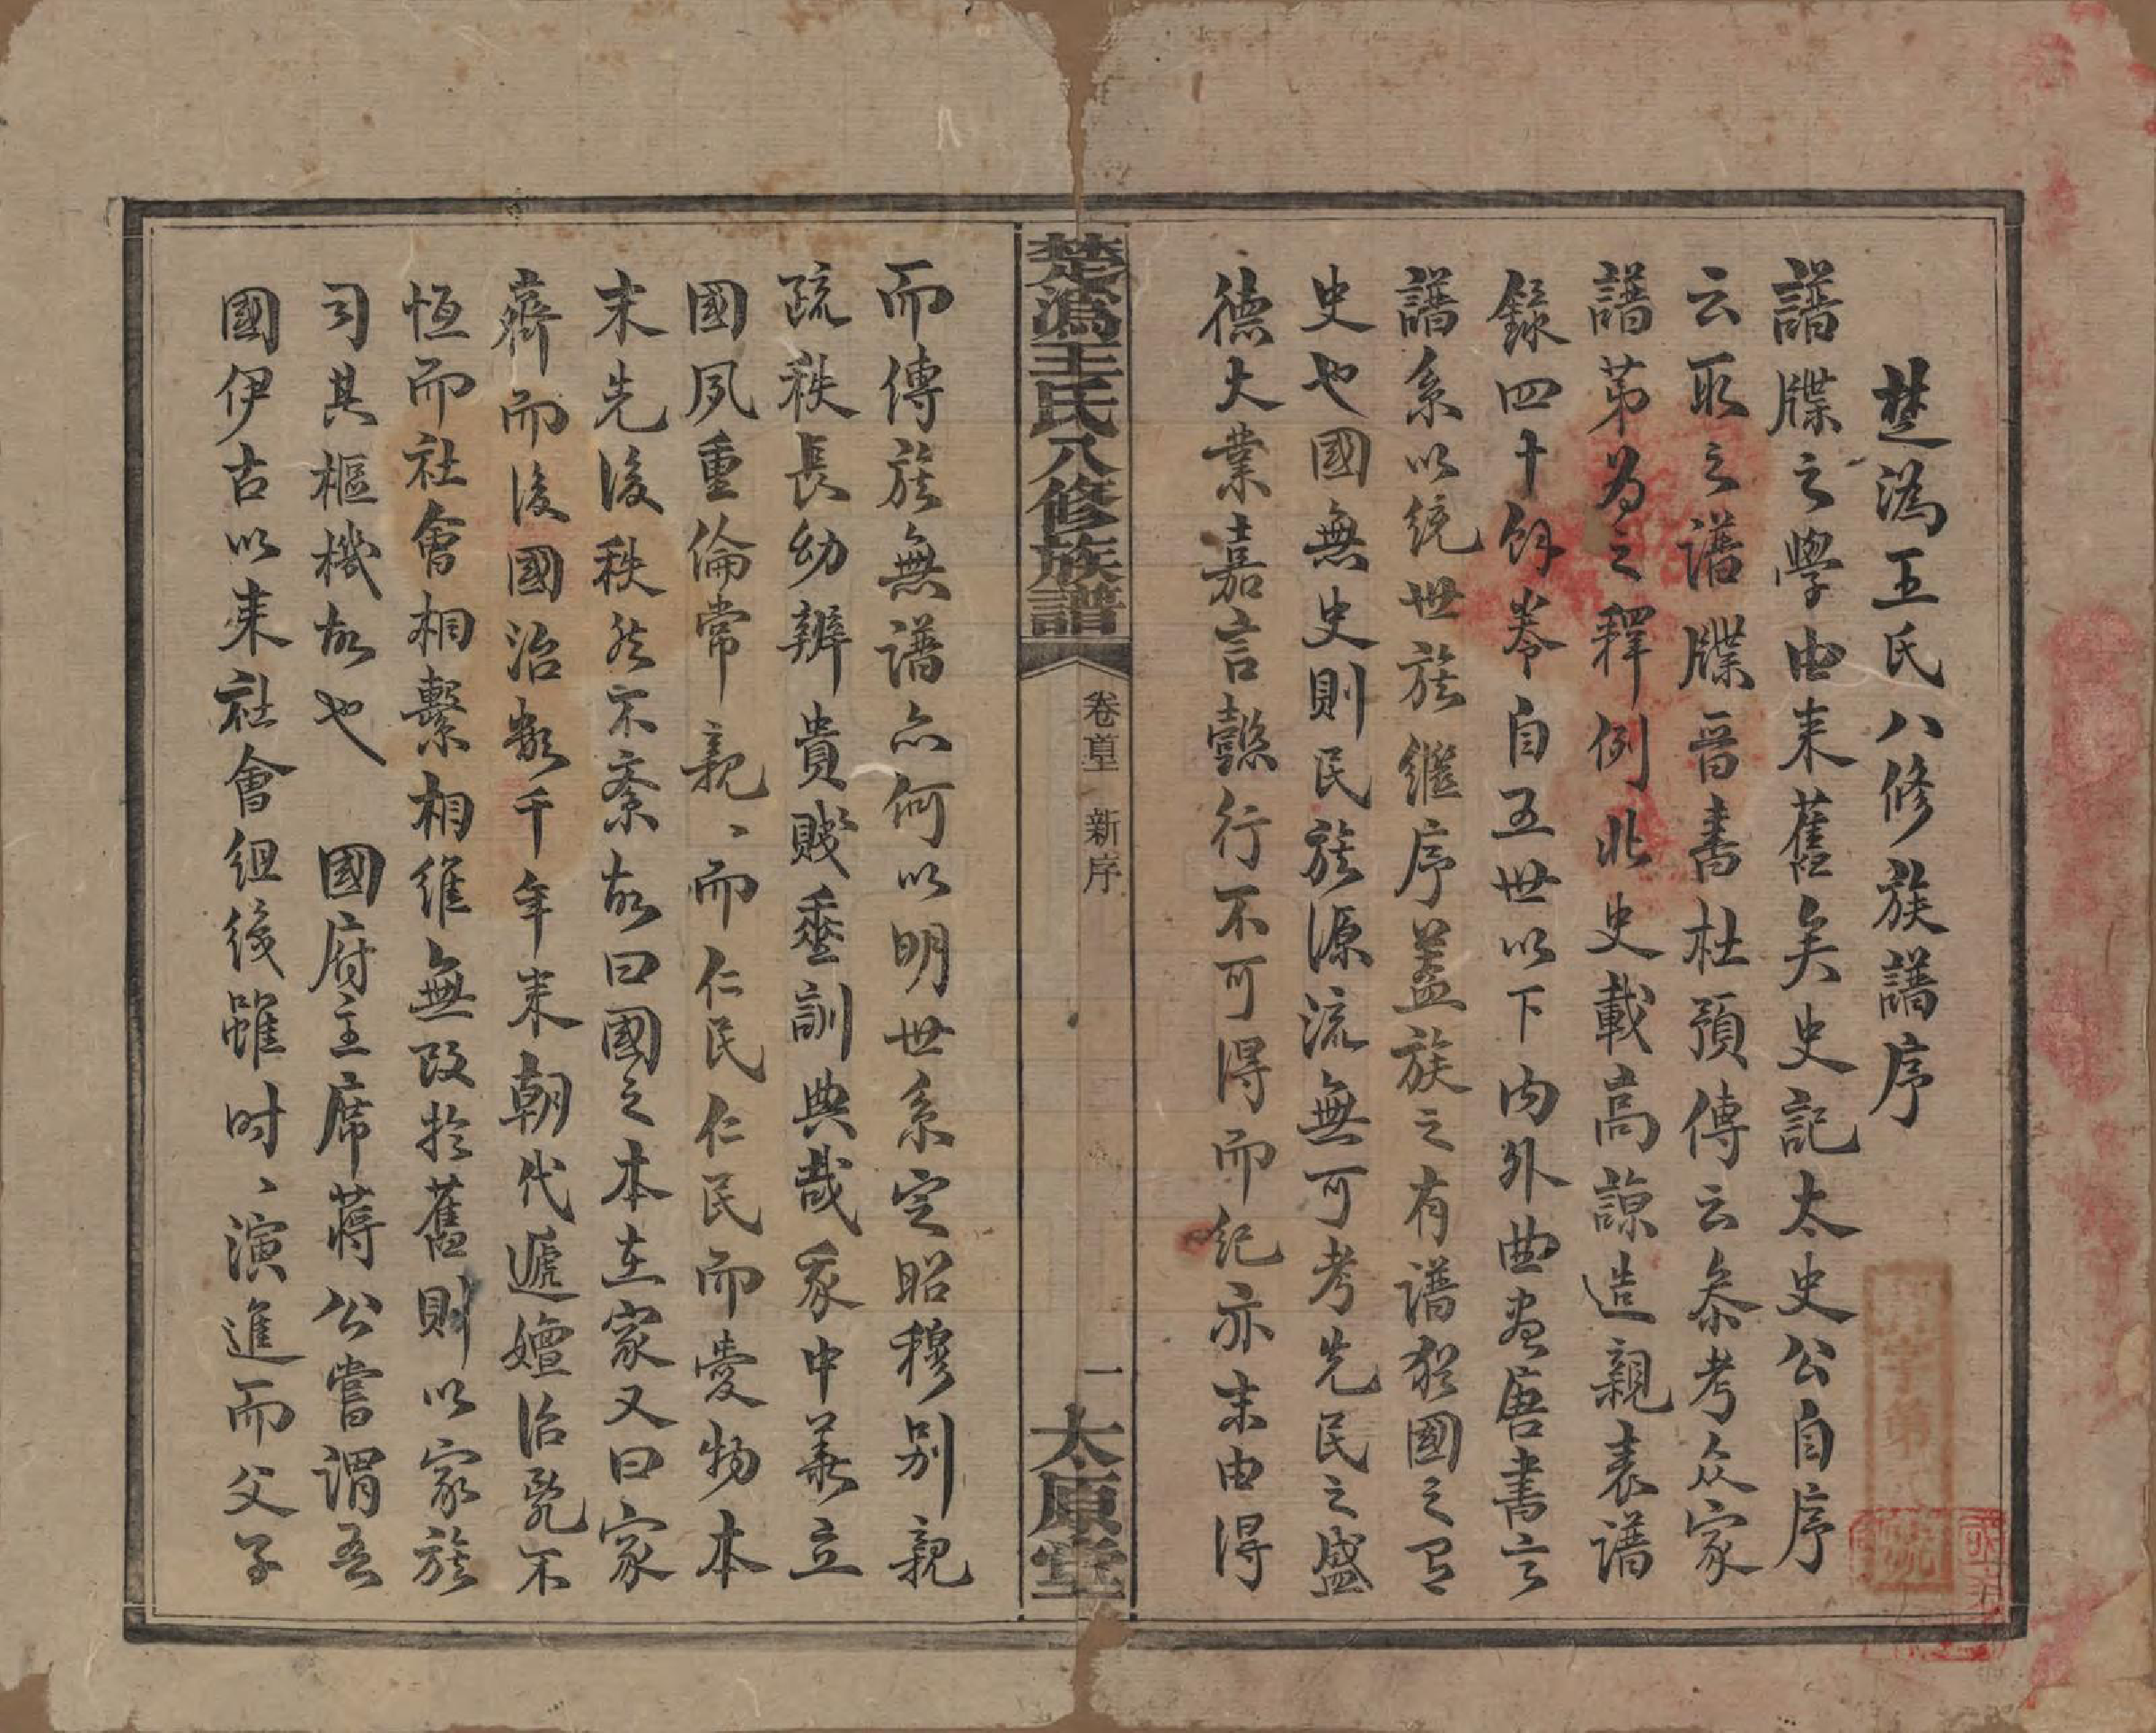 楚溈王氏八修族譜序
譜牒之學由来舊矣史記太史公自序
云取之譜牒晋書杜預傳云叅考众家
譜第为之釋例北史載高諒造親表譜
錄四十餘卷自五世以下内外曲盡唐書言
譜系以统世族繼序蓋族之有譜犹國之有
史也國無史則民族源流無可考先民之盛
德大業嘉言懿行不可得而纪亦末由得
楚溈王氏八修族譜
卷首 新序
一
太原堂
而傳族無譜亦何以明世系定昭穆别親
疏秩長幼辨貴賤垂訓典哉我中華立
國夙重倫常親、而仁民仁民而爱物本
末先後秩然不紊故曰國之本在家又曰家
齊而後國治數千年来朝代遞嬗治亂不
恆而社會相繫相維無改於舊則以家族
司其樞機故也 國府主席蔣公嘗謂吾
國伊古以来社會组後雖时、演進而父子